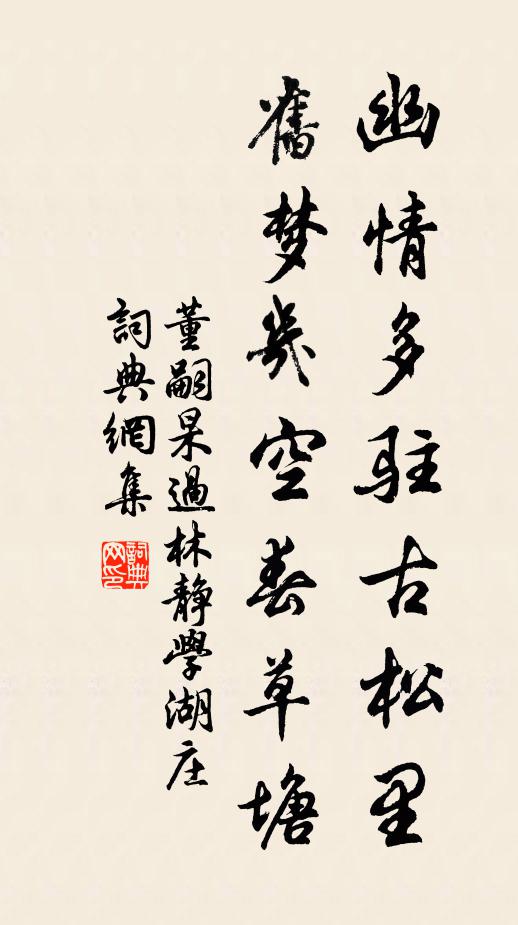 幽情多駐古松里
舊梦幾空春草塘
董嗣杲過林静學湖庄
詞典網集
詞典网印